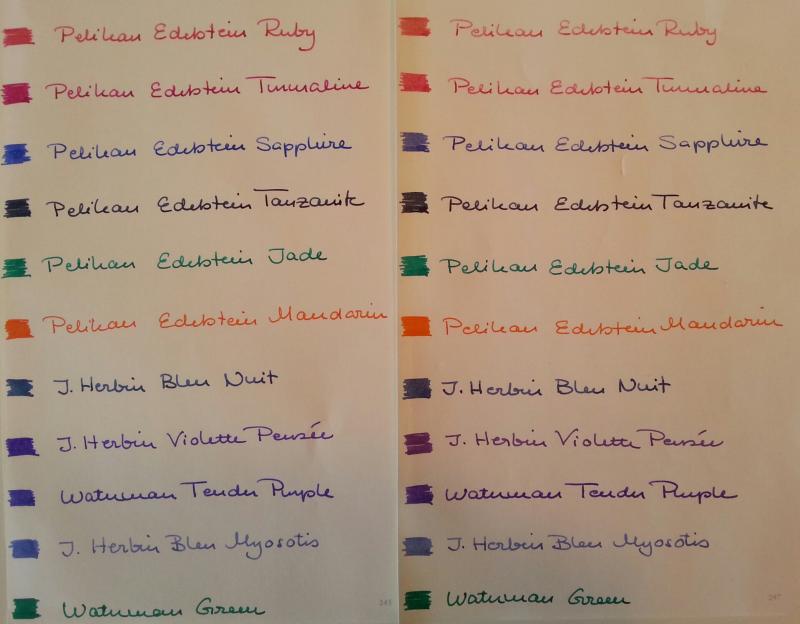 Pelikan Edelstein Ruby
Pelikan Edelstein Turmaline
Pelikan Edelstein Sapphire
Pelikan Edelstein Tanzanite
Pelikan Edelstein Jade
Pelikan Edelstein Mandarin
J. Herbin Bleu Nuit
J. Herbin Violette Pensée
Waterman Tender Purple
J. Herbin Bleu Myosotis
Waterman Green
245
Pelikan Edelstein Ruby
Pelikan Edelstein Turmaline
Pelikan Edelstein Sapphire
Pelikan Edelstein Tanzanite
Pelikan Edelstein Jade
Pelikan Edelstein Mandarin
J. Herbin Bleu Nuit
J. Herbin Violette Pensée
Waterman Tender Purple
J. Herbin Bleu Myosotis
Waterman Green
247